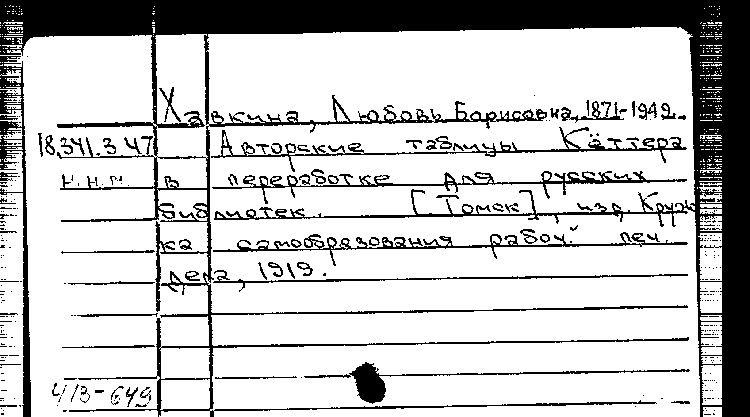 Хавкина, Любовь Борисовна, 1871-1949.
18.341.3.47 Авторские таблицы Кёттера
н.н.м. в переработке для русских
библиотек. [Томск], изд. Круж
ка самообразования рабоч. печ.
дела, 1919.
4/13-649